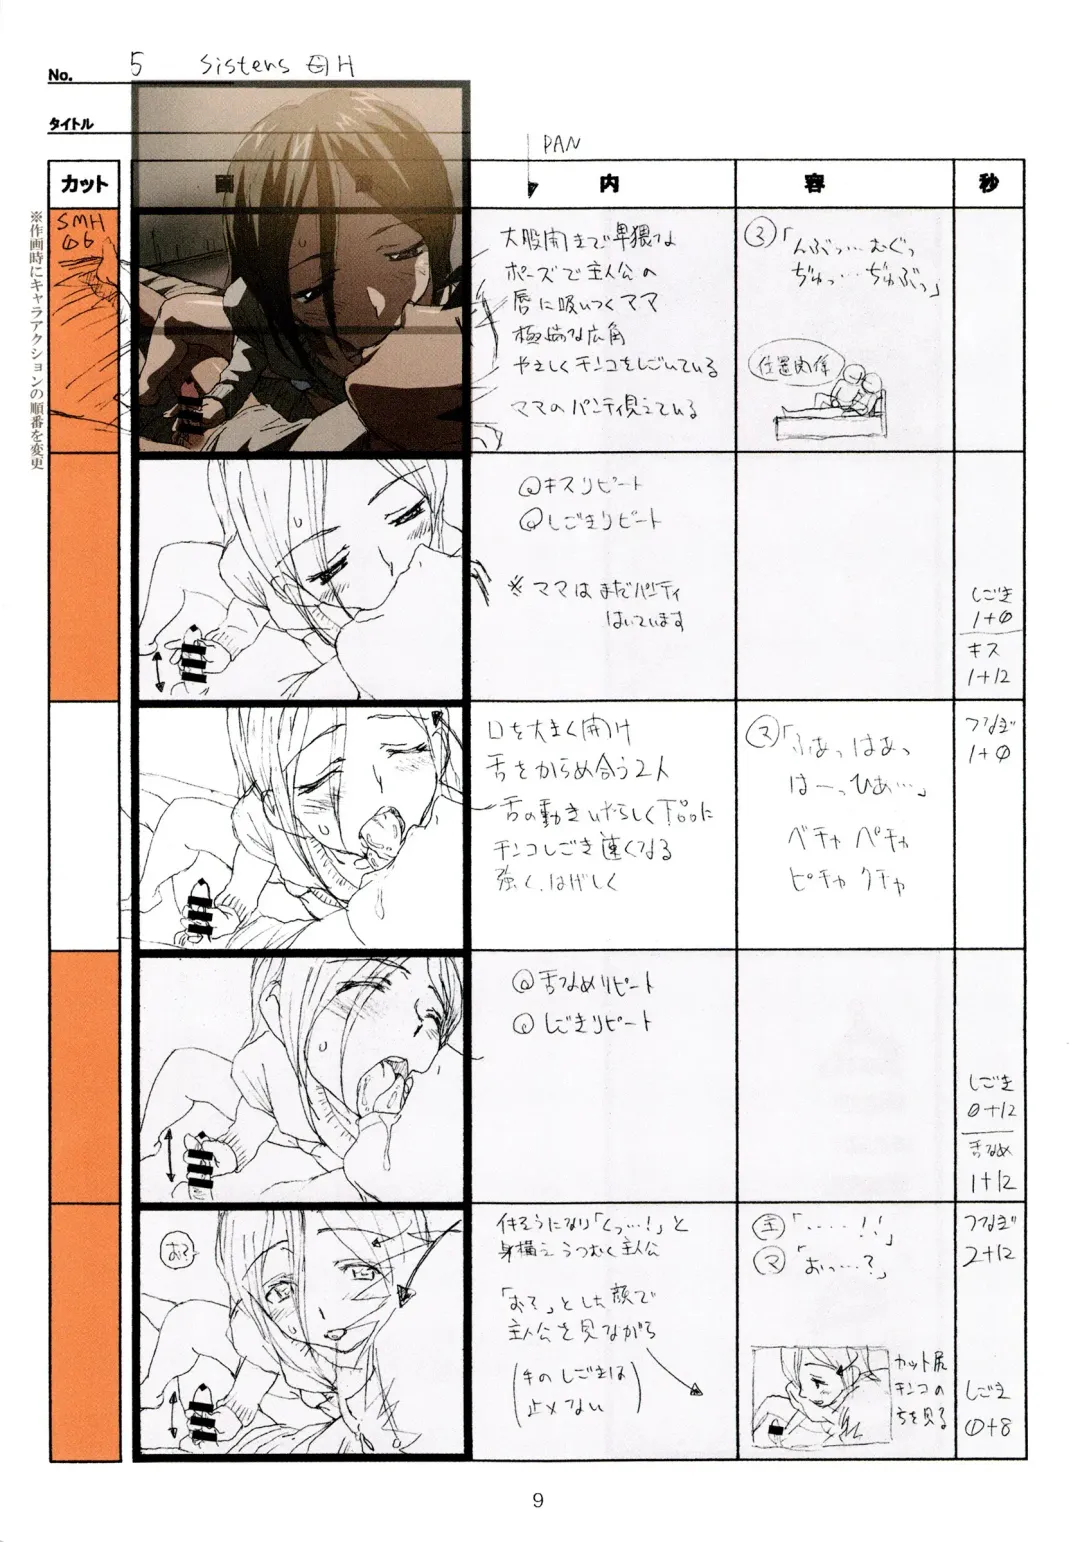 No. 5 Sisters 母H
タイトル
PAN
カット 画 面 内 容 秒
※作画時にキャラアクションの順番を変更
SMH
06
大股開きで卑猥な
ポーズで主人公の
唇に吸いつくママ
極端な広角
やさしくチンコをしごいている
ママのパンティ見えている
マ「んぶっ…むぐっ
ぢゅっ…ぢゅぶっ」
位置関係
キスリピート
しごきリピート
※ママはまだパンティ
はいています
しごき
1+0
キス
1+12
口を大きく開け
舌をからめ合う2人
舌の動きいやらしく下品に
チンコしごき速くなる
強く、はげしく
マ「ふぁっはぁっ
はーっひぁ…」
ベチャ ペチャ
ピチャ クチャ
つなぎ
1+0
舌なめリピート
しごきリピート
しごき
0+12
舌なめ
1+12
おや
イキそうになり「くっ…!」と
身構えうつむく主人公
「おや」とした顔で
主人公を見ながら
(手のしごきは
止めない)
主「……!!」
マ「おっ…?」
カット尻
チンコの
方を見る
つなぎ
2+12
しごき
0+8
9